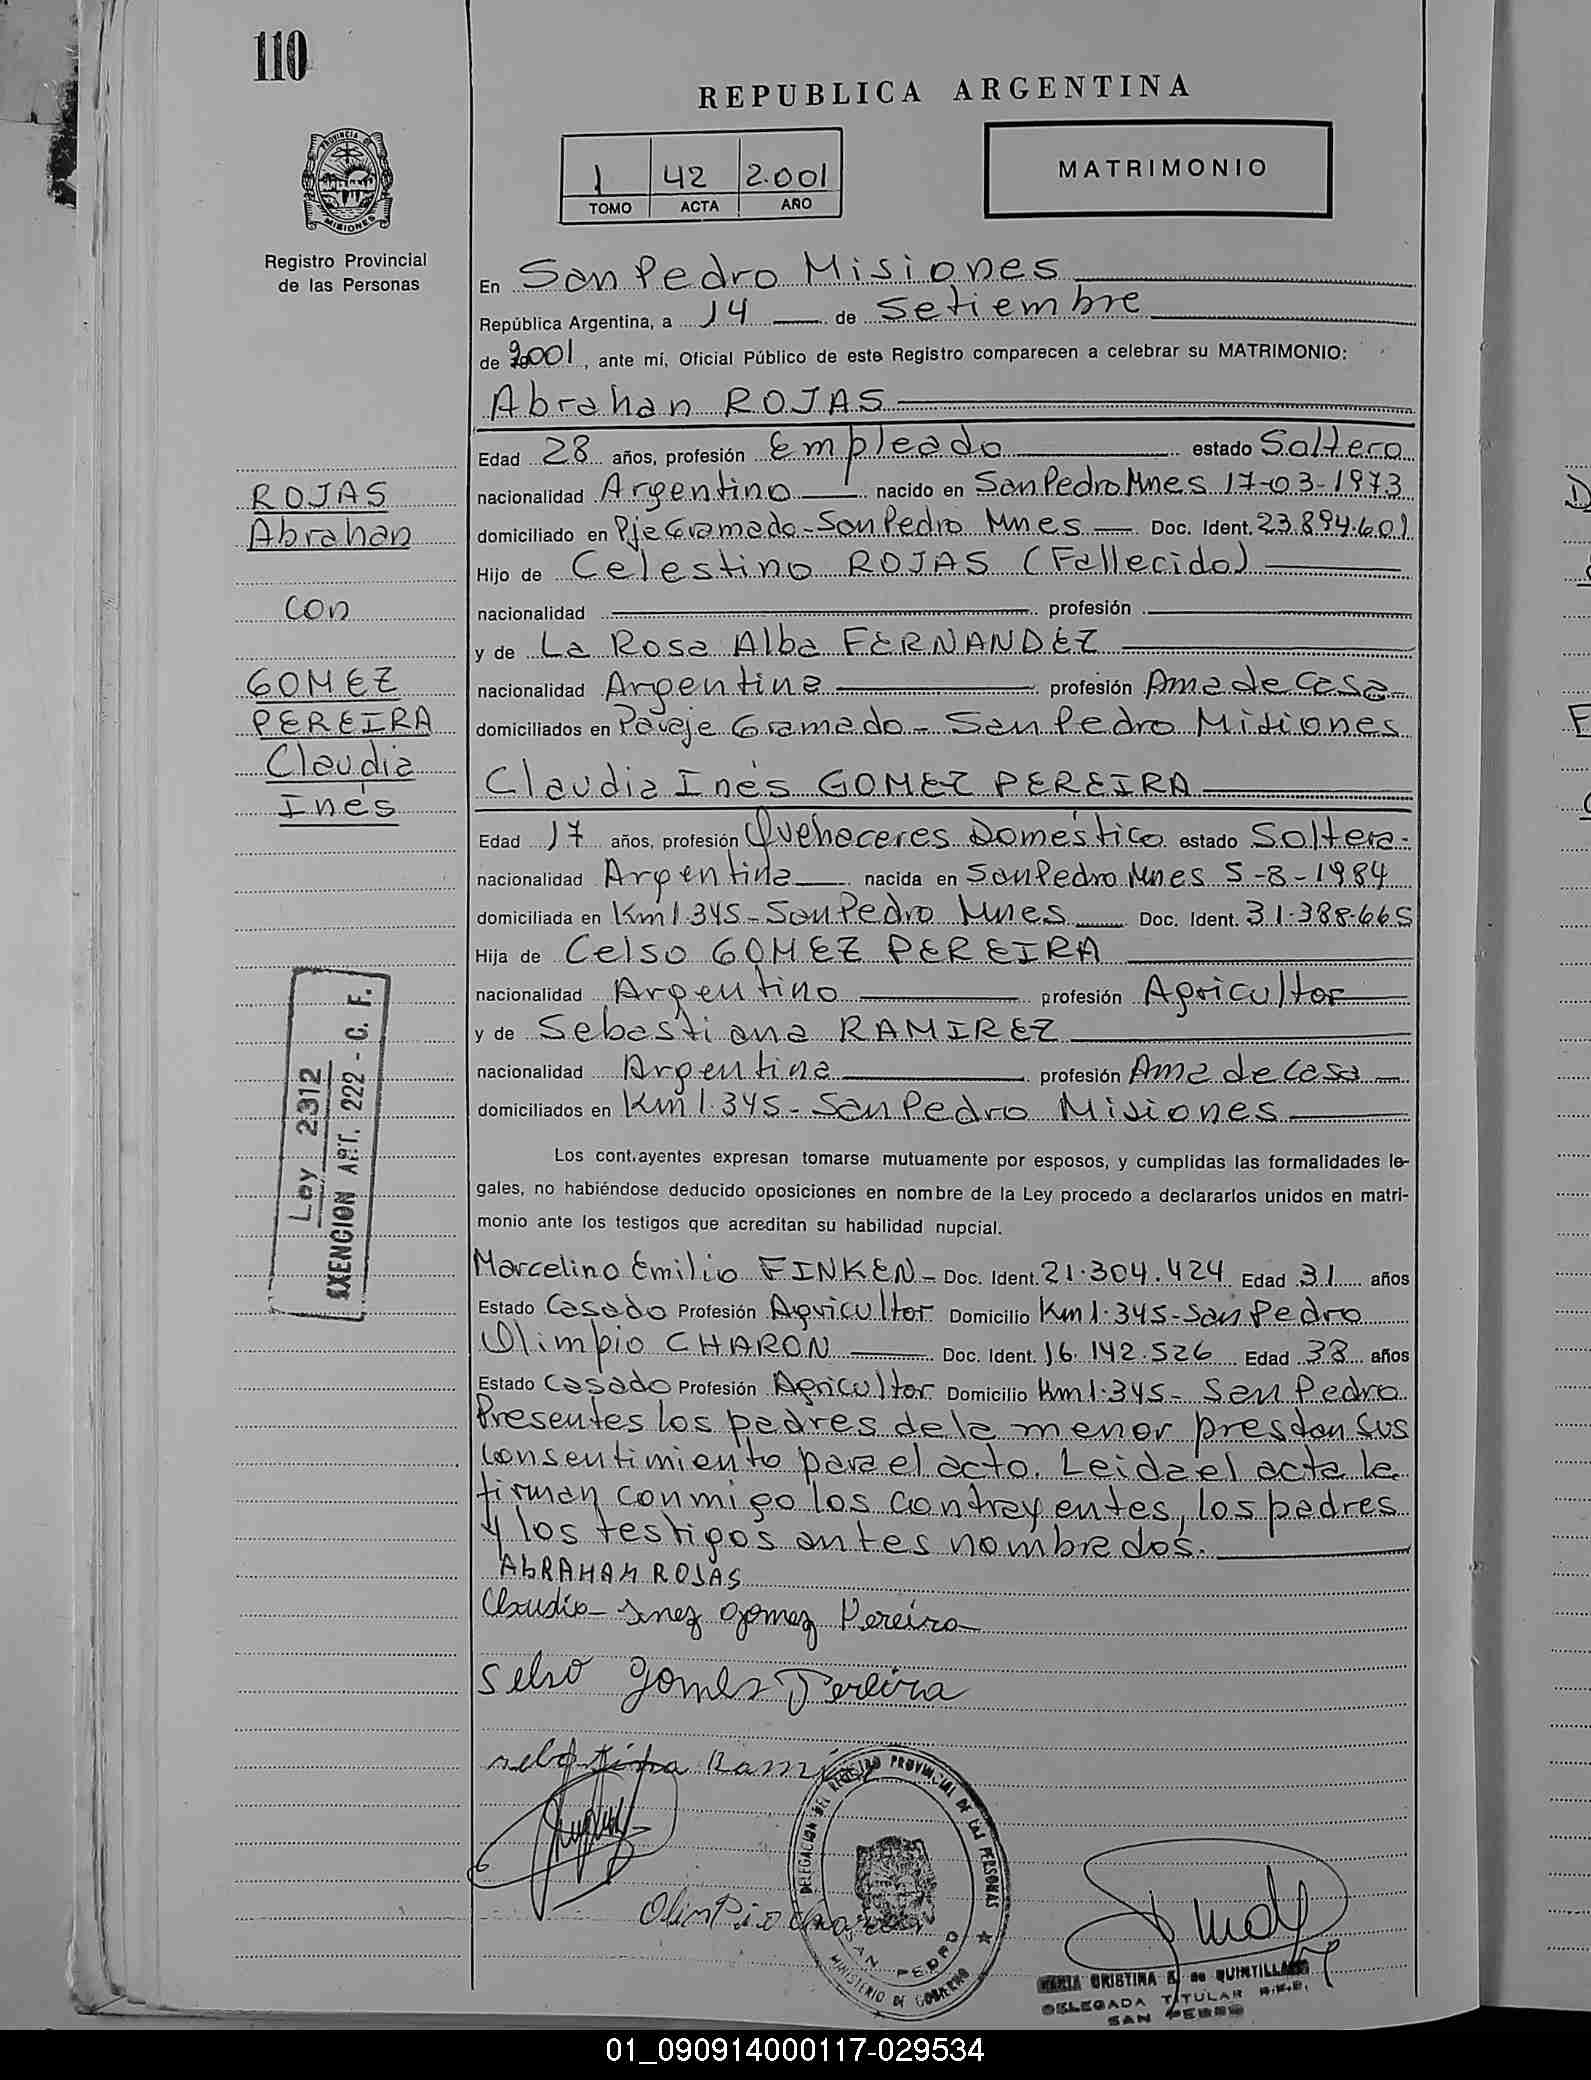 110
REPUBLICA ARGENTINA
PROVINCIA DE
MISIONES
Registro Provincial
de las Personas
1 42 2.001
TOMO ACTA AÑO
MATRIMONIO
En San Pedro Misiones
República Argentina, a 14 de Setiembre
de 2001, ante mí, Oficial Público de este Registro comparecen a celebrar su MATRIMONIO:
Abrahan ROJAS
Edad 28 años, profesión Empleado estado Soltero
nacionalidad Argentino nacido en San Pedro Mnes 17-03-1973
domiciliado en Pje Gramado - San Pedro Mnes Doc. Ident. 23.894.601
Hijo de Celestino ROJAS (Fallecido)
nacionalidad profesión
y de La Rosa Alba FERNANDEZ
nacionalidad Argentina profesión Ama de Casa
domiciliados en Paraje Gramado - San Pedro Misiones
Claudia Inés GOMEZ PEREIRA
Edad 17 años, profesión Quehaceres Doméstico estado Soltera
nacionalidad Argentina nacida en San Pedro Mnes 5-8-1984
domiciliada en Km 1.345 - San Pedro Mnes Doc. Ident. 31.388.665
Hija de Celso GOMEZ PEREIRA
nacionalidad Argentino profesión Agricultor
y de Sebastiana RAMIREZ
nacionalidad Argentina profesión Ama de Casa
domiciliados en Km 1.345 - San Pedro Misiones
Los contrayentes expresan tomarse mutuamente por esposos, y cumplidas las formalidades le-
gales, no habiéndose deducido oposiciones en nombre de la Ley procedo a declararlos unidos en matri-
monio ante los testigos que acreditan su habilidad nupcial.
Marcelino Emilio FINKEN - Doc. Ident. 21.304.424 Edad 31 años
Estado Casado Profesión Agricultor Domicilio Km 1.345 - San Pedro
Olimpio CHARON Doc. Ident. 16.142.526 Edad 38 años
Estado Casado Profesión Agricultor Domicilio Km 1.345 - San Pedro
Presentes los padres de la menor prestan sus
consentimiento para el acto. Leida el acta la
firman conmigo los contrayentes, los padres
y los testigos antes nombrados.
ABRAHAM ROJAS
Claudia Inez Gomez Pereira
Selso Gomes Pereira
ROJAS
Abrahan
con
GOMEZ
PEREIRA
Claudia
Inés
Ley 2312
EXENCION ART. 222 - C. F.
Olimpio
DELEGACION DEL REGISTRO PROVINCIAL DE LAS PERSONAS
SAN PEDRO
MINISTERIO DE GOBIERNO
MARIA CRISTINA de QUINTILLAN
DELEGADA TITULAR
SAN PEDRO
01_090914000117-029534